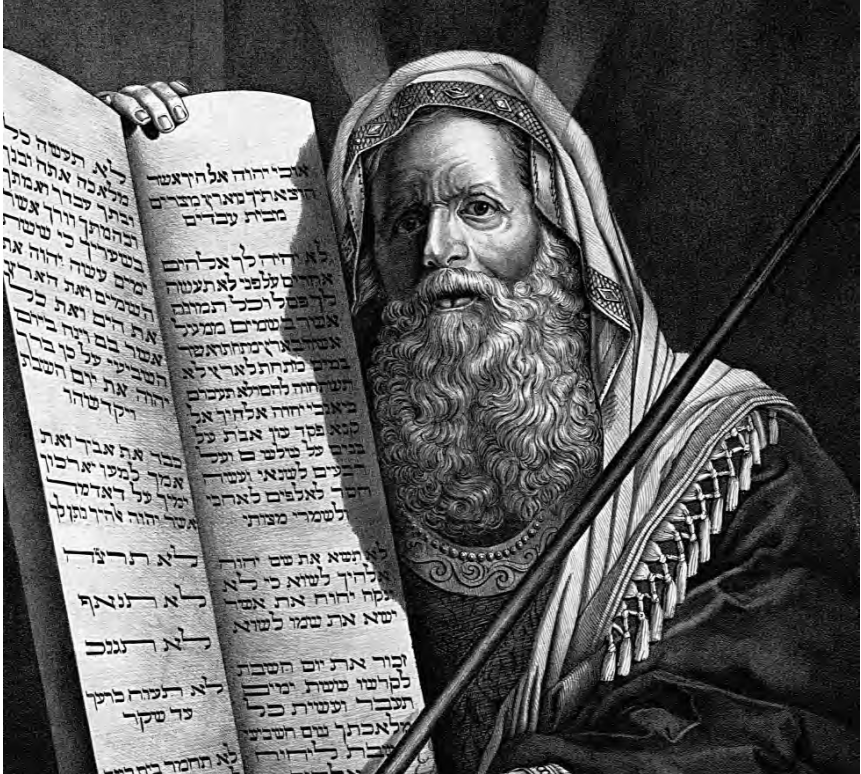 אנכי יהוה אלהיך אשר
הוצאתיך מארץ מצרים
מבית עבדים
לא יהיה לך אלהים
אחרים על פני לא תעשה
לך פסל וכל תמונה
אשר בשמים ממעל
ואשר בארץ מתחת ואשר
במים מתחת לארץ לא
תשתחוה להם ולא תעבדם
כי אנכי יהוה אלהיך אל
קנא פקד עון אבת על
בנים על שלשים ועל
רבעים לשנאי ועשה
חסד לאלפים לאהבי
ולשמרי מצותי
לא תשא את שם יהוה
אלהיך לשוא כי לא
ינקה יהוה את אשר
ישא את שמו לשוא
זכור את יום השבת
לקדשו ששת ימים
תעבד ועשית כל
מלאכתך השביעי
שבת ליהוה
לא תעשה כל
מלאכה אתה ובנך
ובתך עבדך ואמתך
ובהמתך וגרך אשר
בשעריך כי ששת
ימים עשה יהוה את
השמים ואת הארץ
את הים ואת כל
אשר בם וינח ביום
השביעי על כן ברך
יהוה את יום השבת
ויקדשהו
כבד את אביך ואת
אמך למען יארכון
ימיך על האדמה
אשר יהוה אלהיך נתן לך
לא תרצח
לא תנאף
לא תגנב
לא תענה ברעך
עד שקר
לא תחמד בית